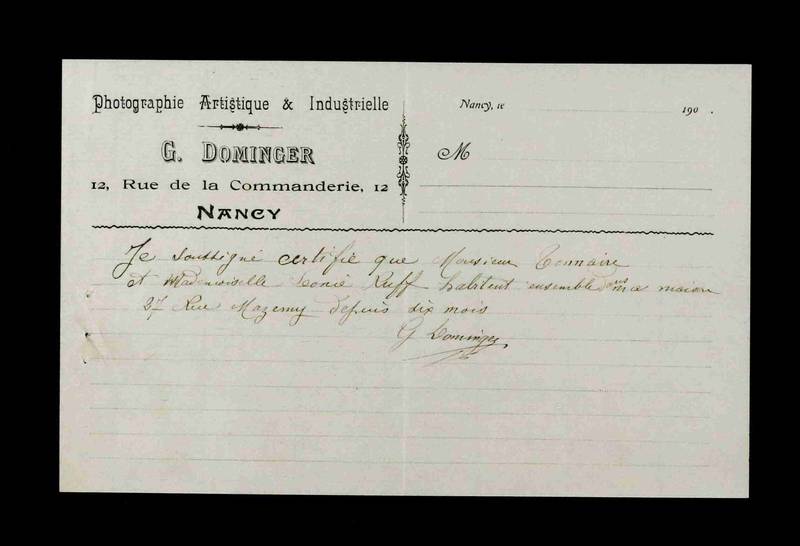 Photographie Artistique & Industrielle
G. DOMINGER
12, Rue de la Commanderie, 12
NANCY
Nancy, le 190 .
M
Je soussigné certifie que Monsieur Tonnaire
et Mademoiselle Leonie Ruff habitent ensemble dans ma maison
27 Rue Mazerny depuis dix mois
G Dominger